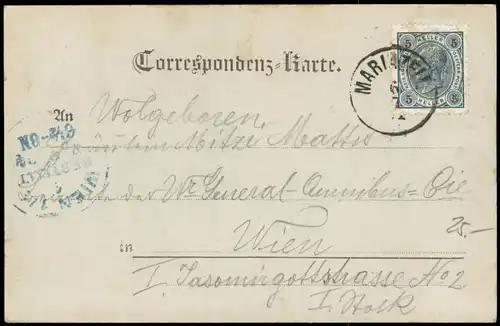 Correspondenz-Karte.
5 HELLER 5
MARIAZELL
6
7
An
Wolgeboren
Fräulein Mitzi Mattis
der Wr General-Omnibus-Cie
in Wien
25.-
I. Jasomirgottstrasse No 2
I. Stock
WIEN
BESTELLT
6½-8N